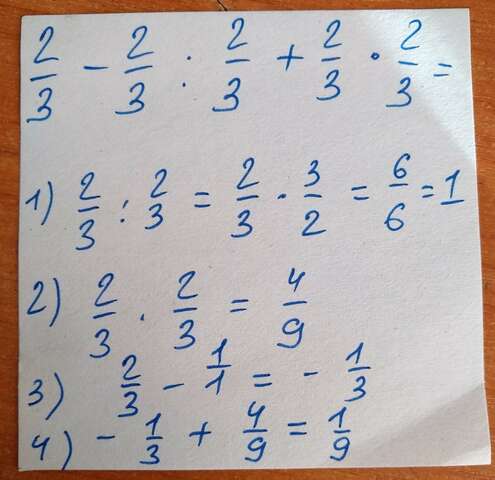 2/3 - 2/3 : 2/3 + 2/3 · 2/3 =
1) 2/3 : 2/3 = 2/3 · 3/2 = 6/6 = 1
2) 2/3 · 2/3 = 4/9
3) 2/3 - 1/1 = - 1/3
4) - 1/3 + 4/9 = 1/9